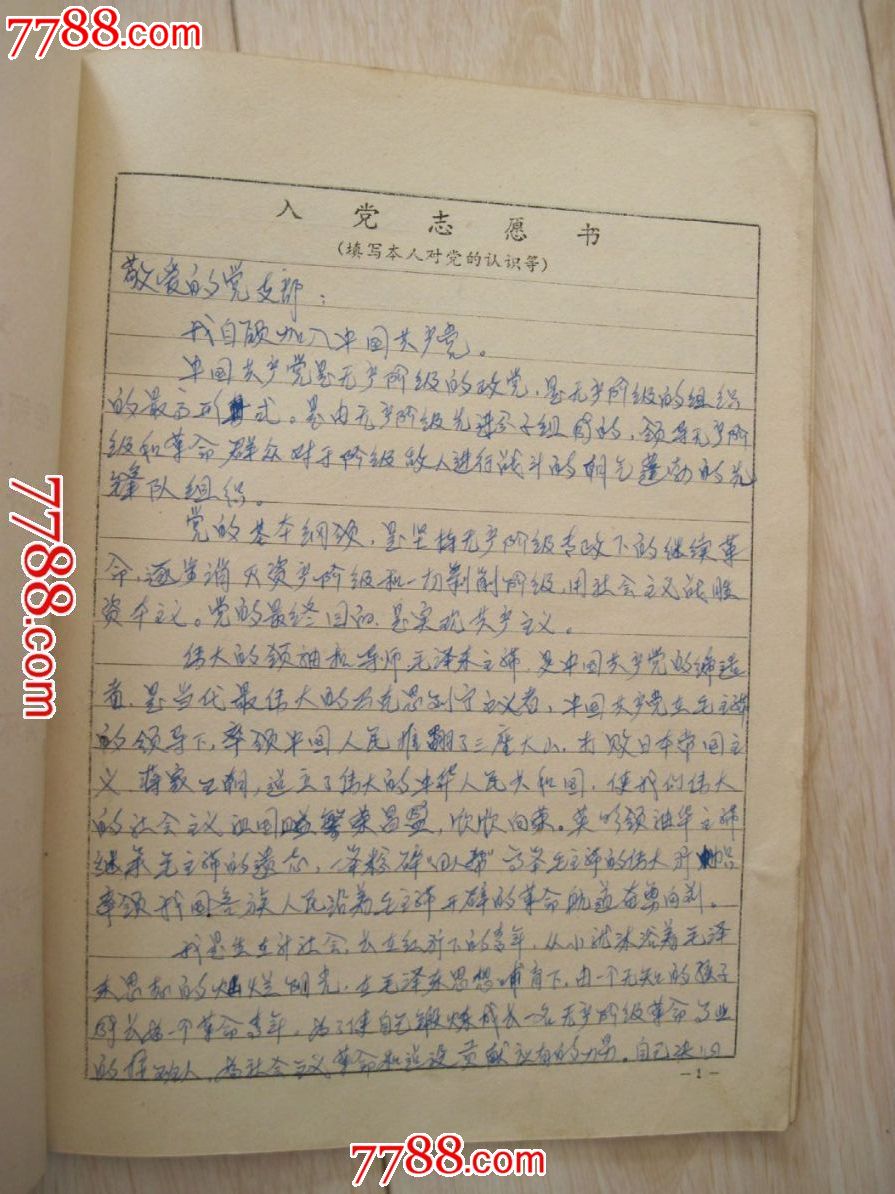 7788.com
7788.com
入党志愿书
(填写本人对党的认识等)
敬爱的党支部：
我自愿加入中国共产党。
中国共产党是无产阶级的政党，是无产阶级的组织
的最高形式。是由无产阶级先进分子组成的，领导无产阶
级和革命群众对于阶级敌人进行战斗的朝气蓬勃的先
锋队组织。
党的基本纲领，是坚持无产阶级专政下的继续革
命，逐步消灭资产阶级和一切剥削阶级，用社会主义战胜
资本主义。党的最终目的，是实现共产主义。
伟大的领袖和导师毛泽东主席，是中国共产党的缔造
者，是当代最伟大的马克思列宁主义者，中国共产党在毛主席
的领导下，率领中国人民推翻了三座大山，打败日本帝国主
义，蒋家王朝，建立了伟大的中华人民共和国，使我们伟大
的社会主义祖国繁荣昌盛，欣欣向荣。英明领袖华主席
继承毛主席的遗志，一举粉碎"四人帮"高举毛主席的伟大旗帜
率领我国各族人民沿着毛主席开辟的革命航道奋勇向前。
我是生在新社会，长在红旗下的青年，从小就沐浴着毛泽
东思想的灿烂阳光，在毛泽东思想哺育下，由一个无知的孩子
成长为一个革命青年。为了使自己锻炼成长一名无产阶级革命事业
的接班人，为社会主义革命和建设贡献应有的力量。自己决心
-1-
7788.com
7788.com
7788.com
7788.com